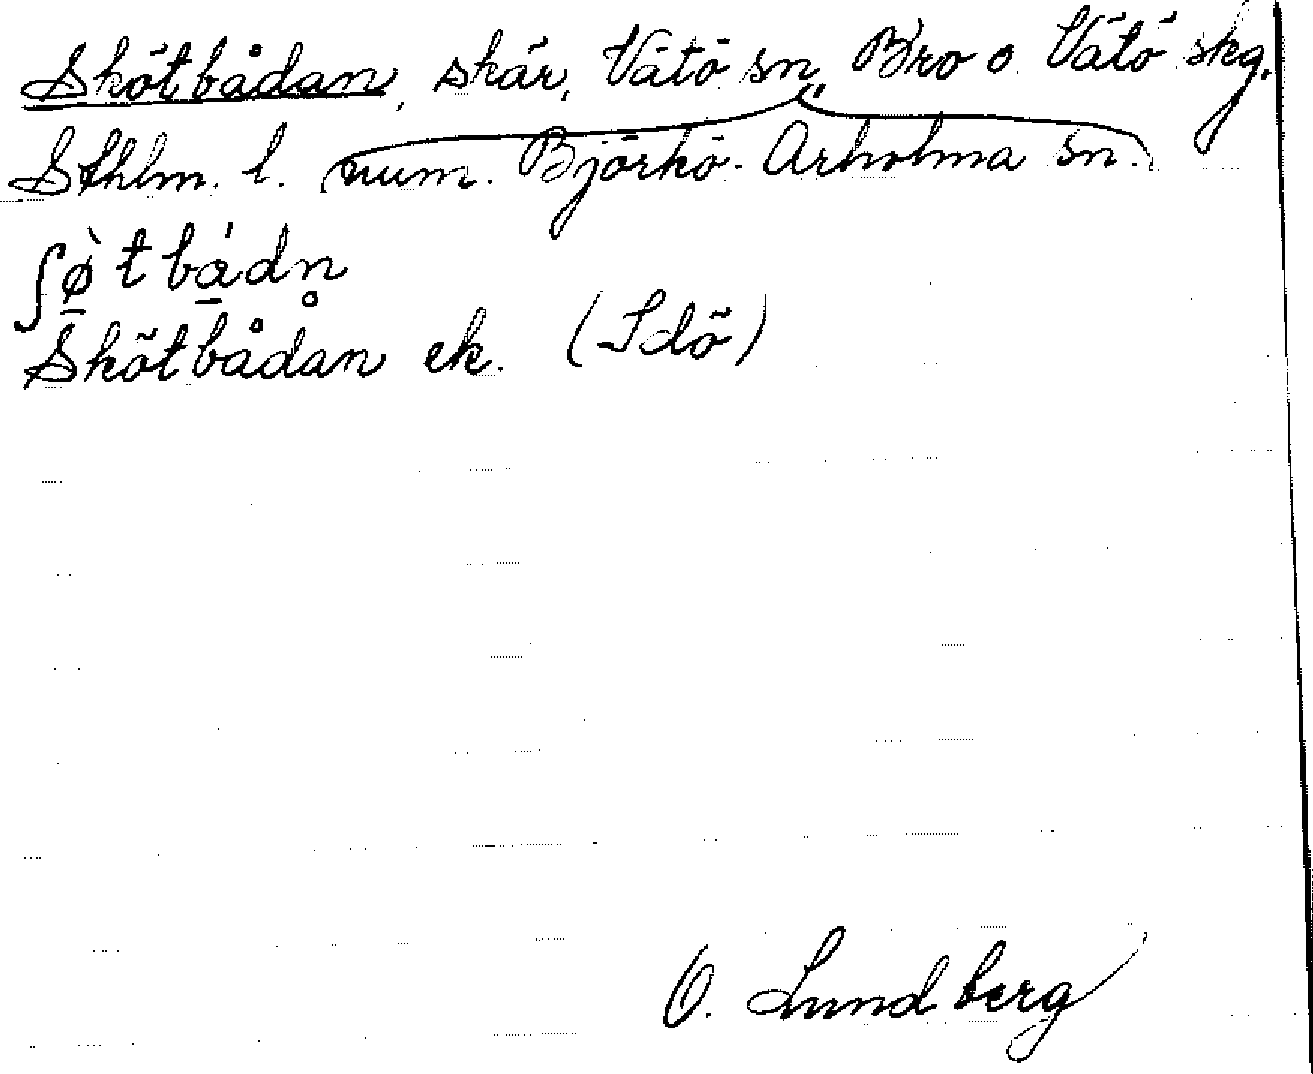 Skötbådan, skär, Vätö sn, Bro o. Vätö skg,
Sthlm. l. (num. Björkö-Arholma sn.)
ʃø̠̀tbǻ̠dn̥
Skötbådan ek. (Idö)
O. Lundberg